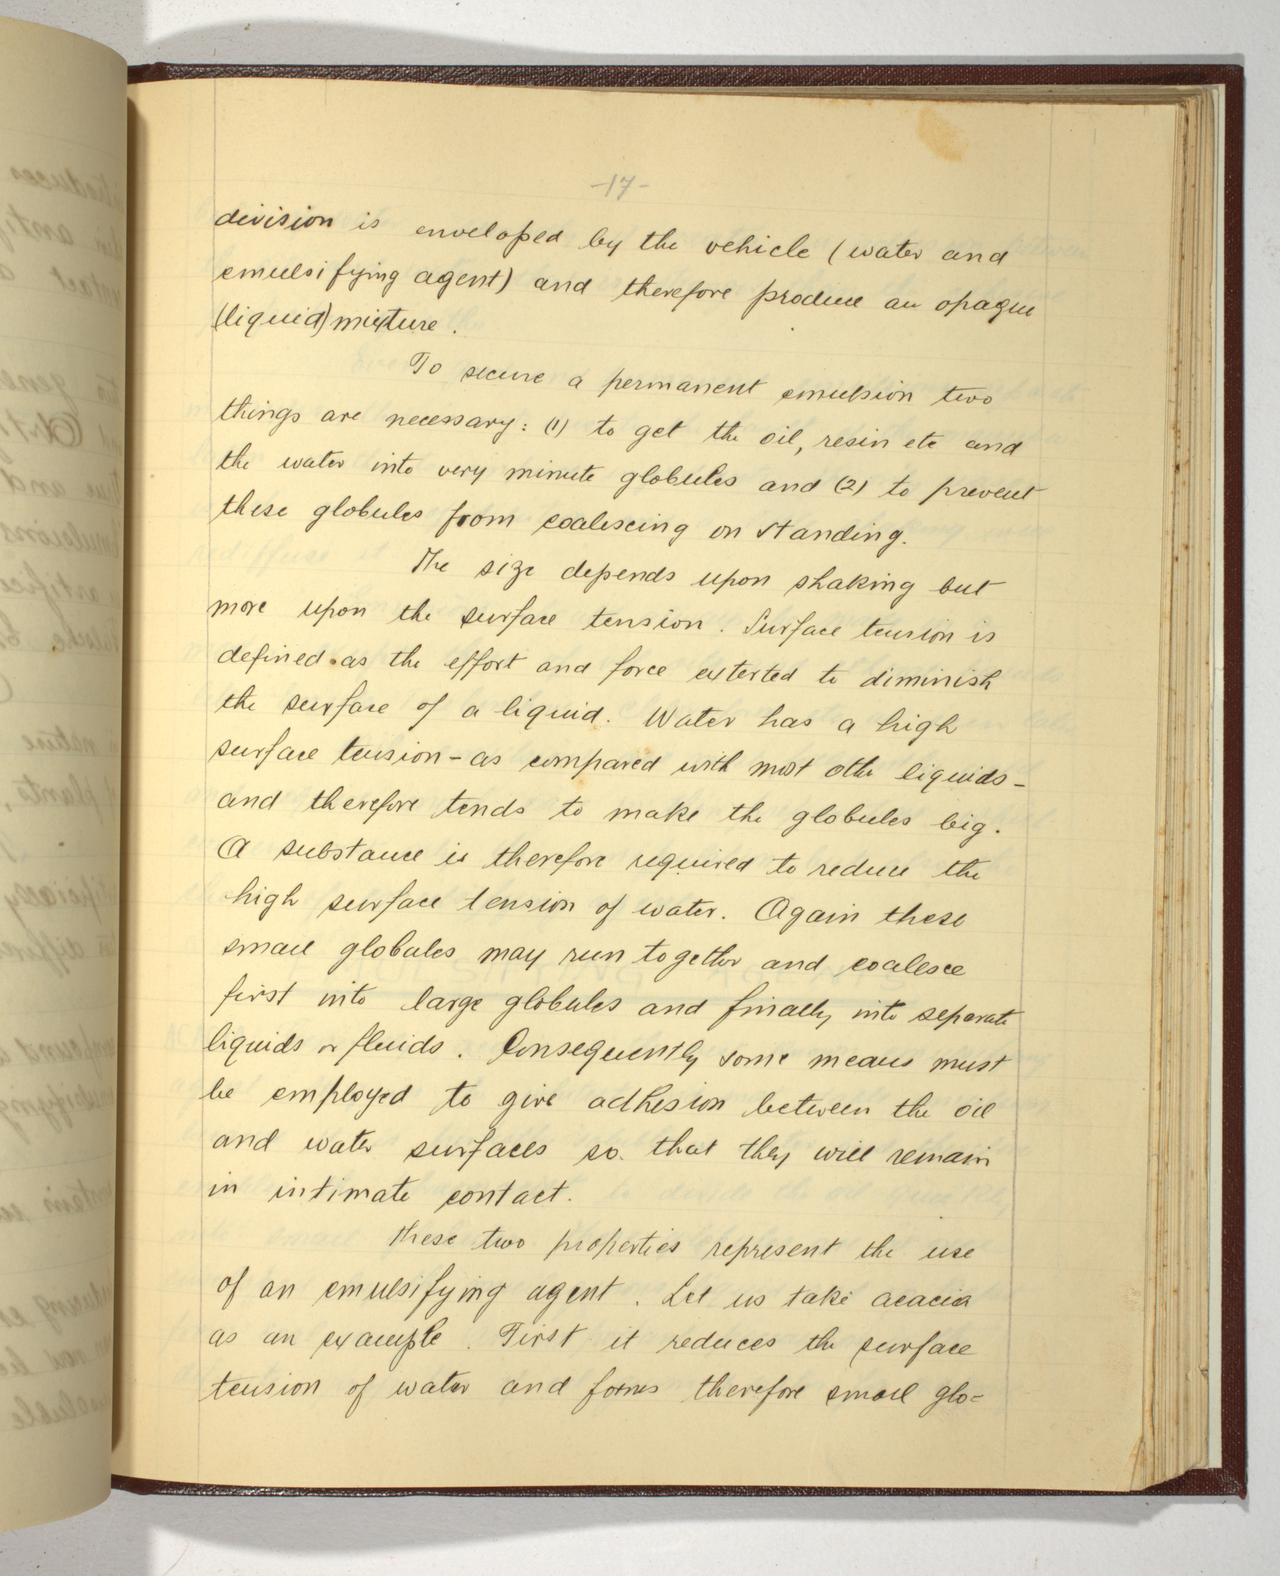 -17-
division is enveloped by the vehicle (water and
emulsifying agent) and therefore produce an opaque
(liquid) mixture.
To secure a permanent emulsion two
things are necessary: (1) to get the oil, resin etc and
the water into very minute globules and (2) to prevent
these globules from coalescing on standing.
The size depends upon shaking but
more upon the surface tension. Surface tension is
defined as the effort and force exterted to diminish
the surface of a liquid. Water has a high
surface tension - as compared with most othe liquids -
and therefore tends to make the globules big.
A substance is therefore required to reduce the
high surface tension of water. Again these
small globules may run together and coalesce
first into large globules and finally into separate
liquids or fluids. Consequently some means must
be employed to give adhesion between the oil
and water surfaces so that they will remain
in intimate contact.
These two properties represent the use
of an emulsifying agent. Let us take acacia
as an example. First it reduces the surface
tension of water and forms therefore small glo=